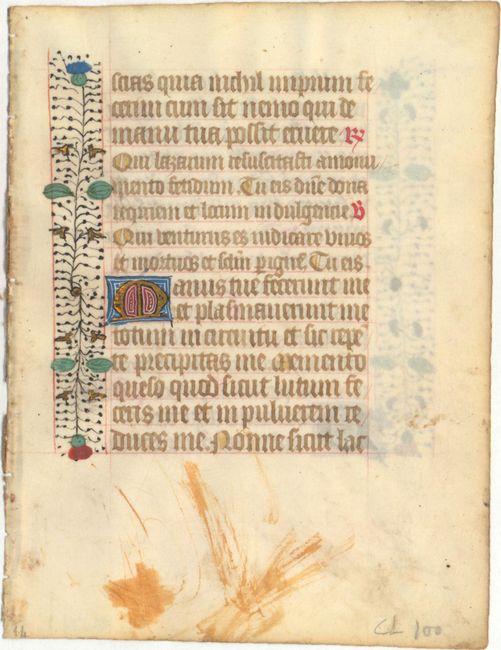 scias quia nichil impium fe
cerim cum sit nemo qui de
manu tua possit eruere. R
Qui lazarum resuscitasti amonu
mento fetidum. Tu eis dne dona
requiem et locum indulgencie V
Qui venturus es iudicare vivos
et mortuos et sclm p igne. Tu eis
Manus tue fecerunt me
et plasmaverunt me
totum in circuitu et sic repe
te precipitas me Memento
queso quod sicut lutum fe
ceris me et in pulverem re
duces me. Nonne sicut lac
CL 100